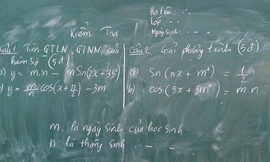 Họ tên : . . .
Lớp : . . .
Ngày sinh : . . .
Kiểm Tra
Câu 1 Tìm GTLN, GTNN của
hàm số (5đ)
a) y = m.n - m Sin(2x + 35°)
b) y = m/n cos(x + π/2) - 3m
Câu 2 Giải phương trình (5đ)
a) Sin (nx + m°) = 1/2
b) cos (5x + 3m°) = m n
m là ngày sinh của học sinh
n là tháng sinh - . - -